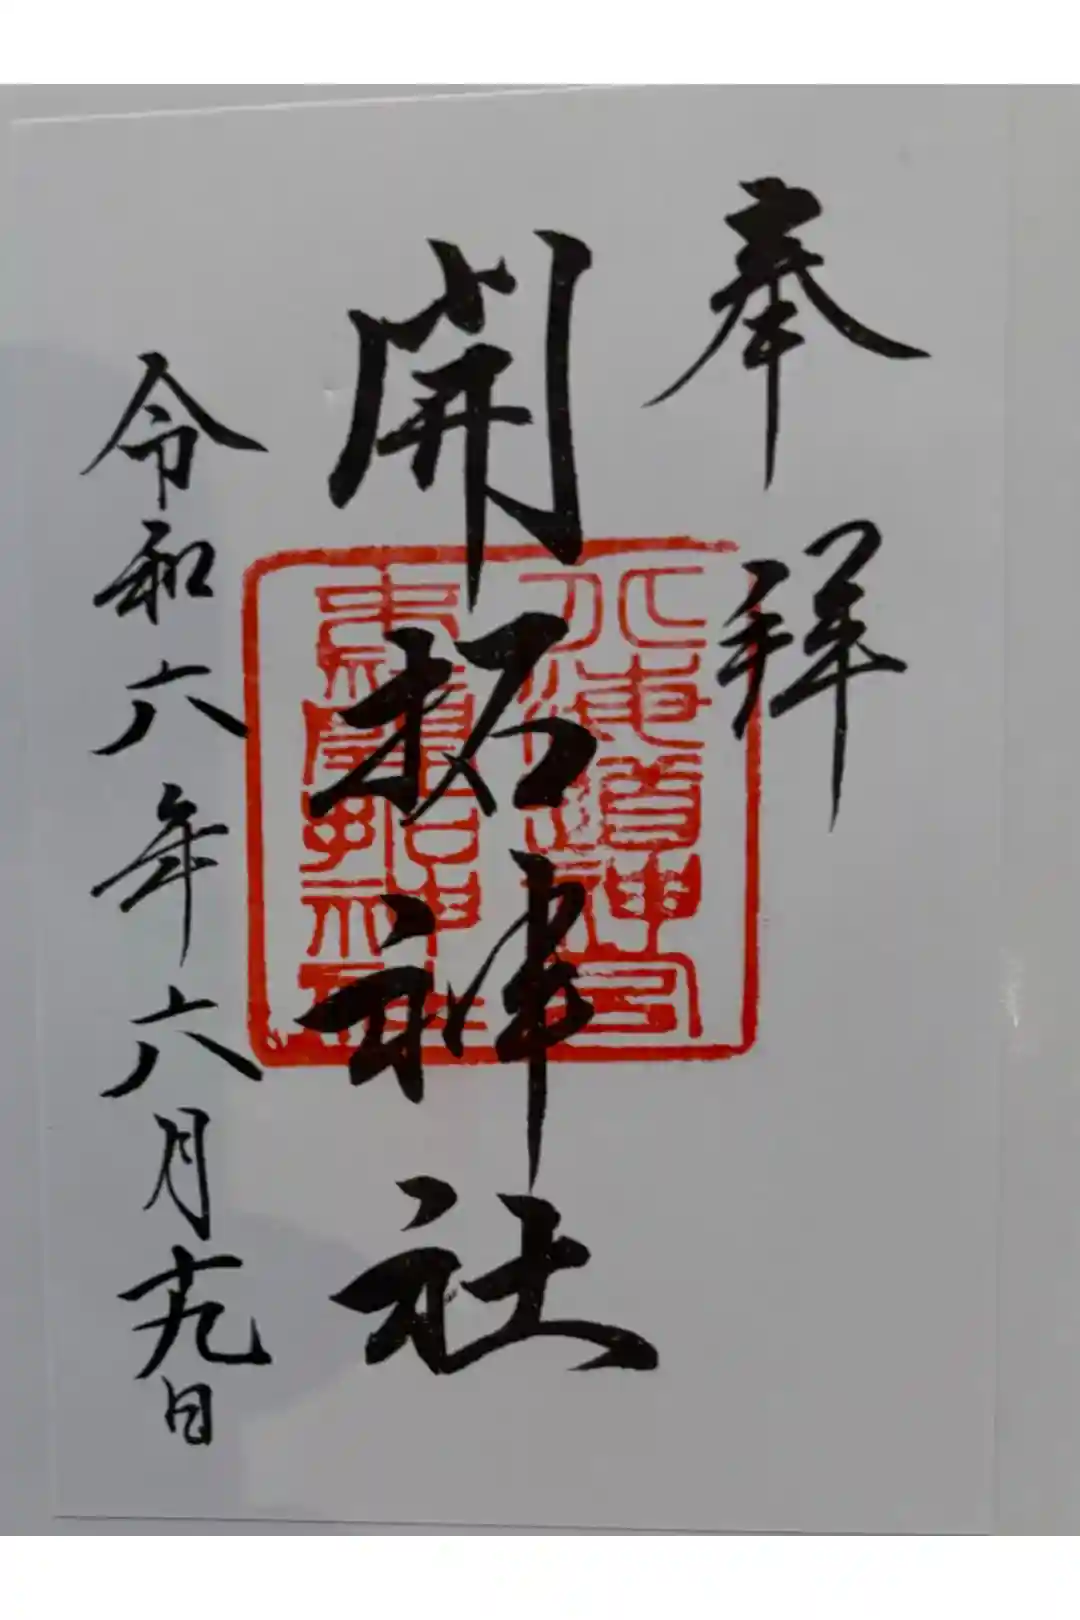 奉拝
開拓神社
北海道神宮
末社開拓神社
令和六年六月十九日